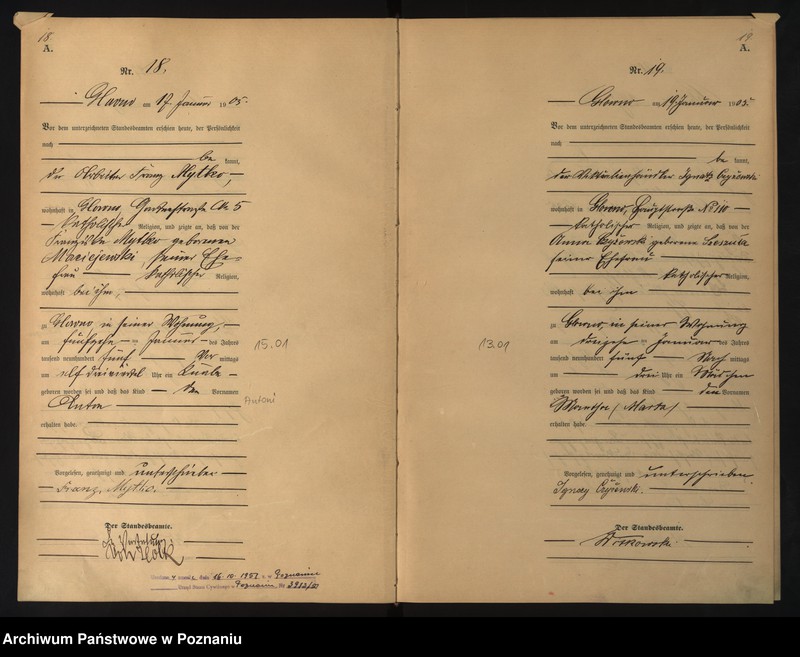 18.
A.
Nr. 18.
Glowno am 17. Januar 1905.
Vor dem unterzeichneten Standesbeamten erschien heute, der Persönlichkeit
nach
be kannt,
der Arbeiter Franz Mytko,
wohnhaft in Glowno, № 5
katholischer Religion, und zeigte an, daß von der
Mytko geborenen
Maciejewski, seiner Ehe-
frau
katholischer Religion,
wohnhaft bei ihm,
zu Glowno in seiner Wohnung,
am fünfzehn ten Januar des Jahres
tausend neunhundert fünf Vor mittags
um elf dreiviertel Uhr ein Knabe
geboren worden sei und daß das Kind den Vornamen
Anton
erhalten habe.
Vorgelesen, genehmigt und unterschrieben
Franz Mytko.
Der Standesbeamte.
15.01
Antoni
16.10.1951 Poznaniu
Urząd Stanu Cywilnego w Poznaniu Nr
19.
A.
Nr. 19.
Glowno am 19. Januar 1905.
Vor dem unterzeichneten Standesbeamten erschien heute, der Persönlichkeit
nach
be kannt,
der Ignatz
wohnhaft in Glowno, Hauptstraße № 110
katholischer Religion, und zeigte an, daß von der
Anna geborene
seiner Ehefrau
katholischer Religion,
wohnhaft bei ihm
zu Glowno, in seiner Wohnung
am dreizehn ten Januar des Jahres
tausend neunhundert fünf Nach mittags
um drei Uhr ein Mädchen
geboren worden sei und daß das Kind den Vornamen
Martha (Marta)
erhalten habe
Vorgelesen, genehmigt und unterschrieben
Ignacy
Der Standesbeamte.
13.01
Archiwum Państwowe w Poznaniu